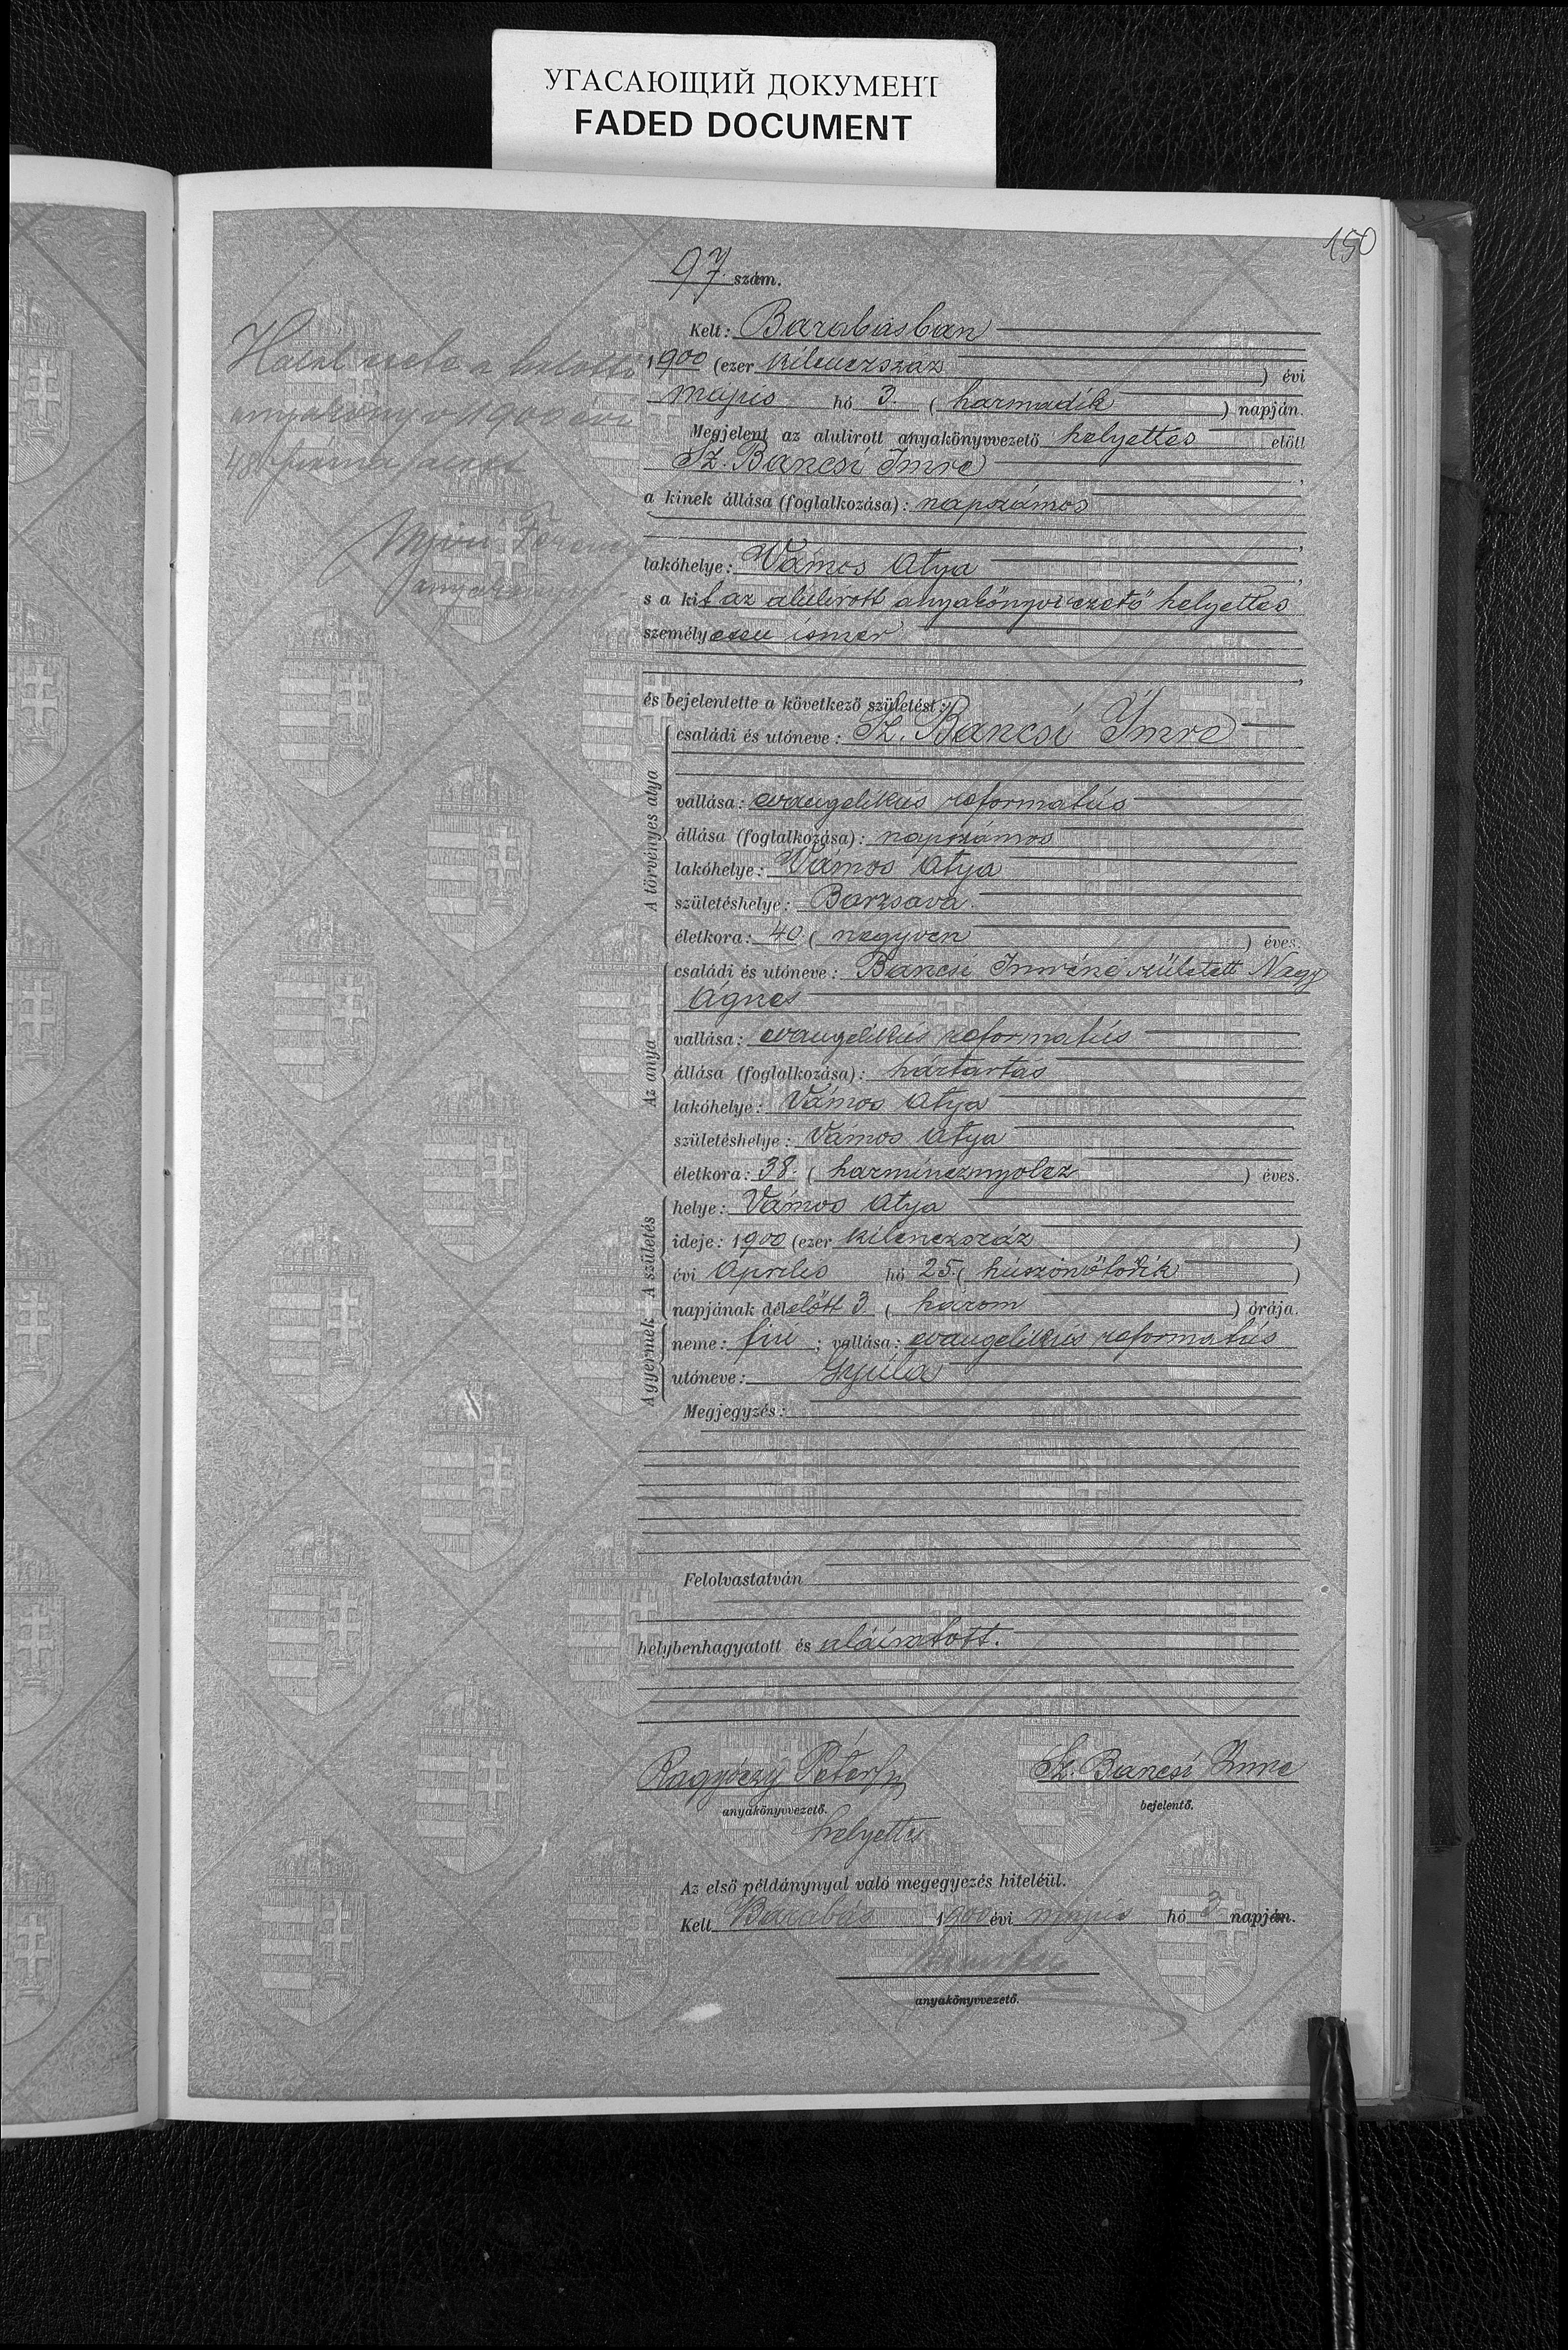 УГАСАЮЩИЙ ДОКУМЕНТ
FADED DOCUMENT
150
97. szám.
Kelt: Barabásban
1900 (ezer kilenczszáz ) évi
majus hó 3. ( harmadik ) napján.
Megjelent az alulirott anyakönyvvezető helyettes előtt
Sz. Bancsi Imre ,
a kinek állása (foglalkozása): napszámos
,
lakóhelye: Vámos Atya ,
s a kit az alulirott anyakönyvvezető helyettes
személyesen ismer
,
és bejelentette a következő születést:
A törvényes atya
családi és utóneve: Sz. Bancsi Imre
vallása: evangelikus reformatus
állása (foglalkozása): napszámos
lakóhelye: Vámos Atya
születéshelye: Barzsava.
életkora: 40. ( negyven ) éves.
Az anya
családi és utóneve: Bancsi Imréné született Nagy
Ágnes
vallása: evangelikus reformatus
állása (foglalkozása): háztartás
lakóhelye: Vámos Atya
születéshelye: Vámos Atya
életkora: 38. ( harmincznyolcz ) éves.
A születés
helye: Vámos Atya
ideje: 1900 (ezer kilenczszáz )
évi Április hó 25. ( huszonötödik )
napjának délelőtt 3. ( három ) órája.
A gyermek
neme: fiu ; vallása: evangelikus reformatus
utóneve: Gyula
Megjegyzés:
Felolvastatván
helybenhagyatott és aláiratott.
Halál esete a halotti
anyakönyv 1900 évi
48 alatt
Ferencz
Péter
anyakönyvvezető.
helyettes
Sz. Bancsi Imre
bejelentő.
Az első példánynyal való megegyezés hiteléül.
Kelt Barabás 1900 évi majus hó 3 napján.
anyakönyvvezető.